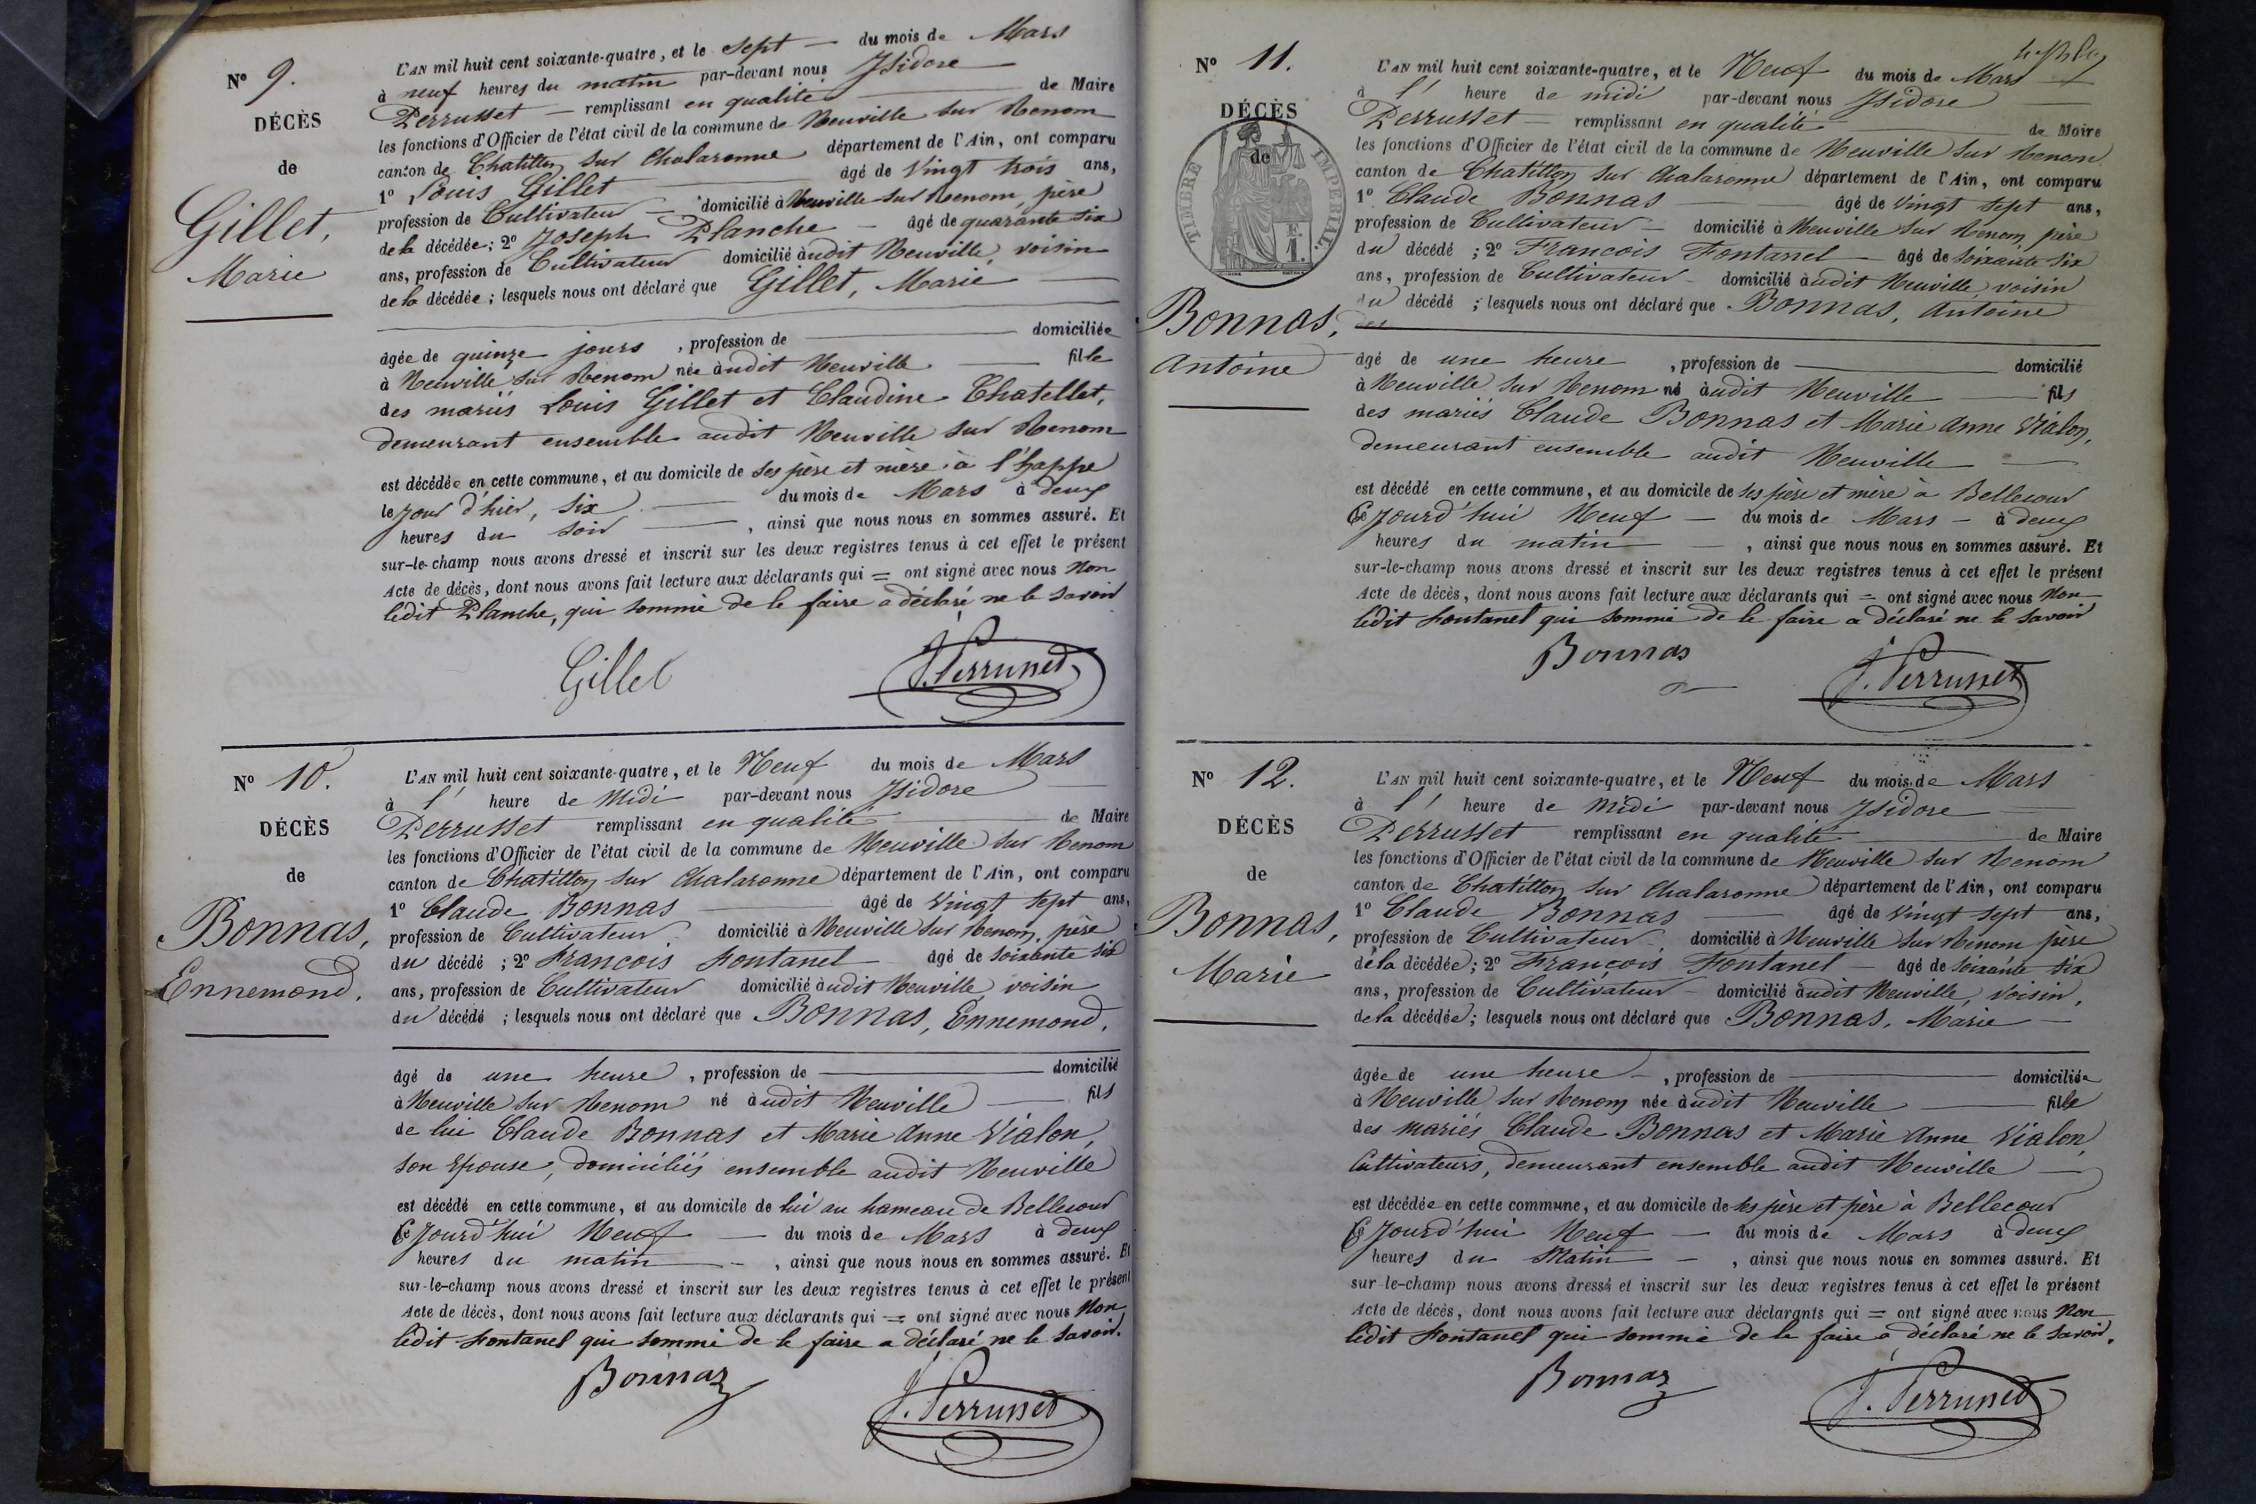 N° 9.
DÉCÈS
de
Gillet,
Marie
L'AN mil huit cent soixante-quatre, et le sept du mois de Mars
à neuf heures du matin par-devant nous Isidore
Perrusset remplissant en qualité de Maire
les fonctions d'Officier de l'état civil de la commune de Neuville sur Renom
canton de Chatillon sur Chalaronne département de l'Ain, ont comparu
1° Louis Gillet âgé de vingt trois ans,
profession de Cultivateur domicilié à Neuville sur Renom, père
de la décédée; 2° Joseph Planche âgé de quarante six
ans, profession de Cultivateur domicilié audit Neuville, voisin
de la décédée; lesquels nous ont déclaré que Gillet, Marie
âgée de quinze jours, profession de domiciliée
à Neuville sur Renom née audit Neuville fille
des mariés Louis Gillet et Claudine Chatellet,
demeurant ensemble audit Neuville sur Renom
est décédée en cette commune, et au domicile de ses père et mère à l'happe
le jour d'hier, six du mois de Mars à deux
heures du soir, ainsi que nous nous en sommes assuré. Et
sur-le-champ nous avons dressé et inscrit sur les deux registres tenus à cet effet le présent
Acte de décès, dont nous avons fait lecture aux déclarants qui = ont signé avec nous Non
ledit Planche, qui sommé de le faire a déclaré ne le savoir
Gillet J. Perrusset
N° 10.
DÉCÈS
de
Bonnas,
Ennemond.
L'AN mil huit cent soixante-quatre, et le Neuf du mois de Mars
à l' heure de Midi par-devant nous Isidore
Perrusset remplissant en qualité de Maire
les fonctions d'Officier de l'état civil de la commune de Neuville sur Renom
canton de Chatillon sur Chalaronne département de l'Ain, ont comparu
1° Claude Bonnas âgé de vingt sept ans,
profession de Cultivateur domicilié à Neuville sur Renom, père
du décédé; 2° François Fontanel âgé de soixante six
ans, profession de Cultivateur domicilié audit Neuville, voisin
du décédé; lesquels nous ont déclaré que Bonnas, Ennemond,
âgé de une heure, profession de domicilié
à Neuville sur Renom né audit Neuville fils
de lui Claude Bonnas et Marie Anne Vialon,
son Epouse, domiciliés ensemble audit Neuville
est décédé en cette commune, et au domicile de lui au hameau de Bellecour
Ce Jourd'hui Neuf du mois de Mars à deux
heures du matin, ainsi que nous nous en sommes assuré. Et
sur-le-champ nous avons dressé et inscrit sur les deux registres tenus à cet effet le présent
Acte de décès, dont nous avons fait lecture aux déclarants qui = ont signé avec nous Non
ledit Fontanel qui sommé de le faire a déclaré ne le savoir.
Bonnaz J. Perrusset
N° 11.
DÉCÈS
de
TIMBRE IMPERIAL.
F.
1.
Bonnas,
Antoine
L'AN mil huit cent soixante-quatre, et le Neuf du mois de Mars
à l' heure de midi par-devant nous Isidore
Perrusset remplissant en qualité de Maire
les fonctions d'Officier de l'état civil de la commune de Neuville sur Renom
canton de Chatillon sur Chalaronne département de l'Ain, ont comparu
1° Claude Bonnas âgé de vingt sept ans,
profession de Cultivateur domicilié à Neuville sur Renom, père
du décédé; 2° François Fontanel âgé de soixante six
ans, profession de Cultivateur domicilié audit Neuville, voisin
du décédé; lesquels nous ont déclaré que Bonnas, Antoine
âgé de une heure, profession de domicilié
à Neuville sur Renom né audit Neuville fils
des mariés Claude Bonnas et Marie Anne Vialon,
demeurant ensemble audit Neuville
est décédé en cette commune, et au domicile de ses père et mère à Bellecour
Ce Jourd'hui Neuf du mois de Mars à deux
heures du matin, ainsi que nous nous en sommes assuré. Et
sur-le-champ nous avons dressé et inscrit sur les deux registres tenus à cet effet le présent
Acte de décès, dont nous avons fait lecture aux déclarants qui = ont signé avec nous Non
ledit Fontanel qui sommé de le faire a déclaré ne le savoir
Bonnas J. Perrusset
N° 12.
DÉCÈS
de
Bonnas,
Marie
L'AN mil huit cent soixante-quatre, et le Neuf du mois de Mars
à l' heure de Midi par-devant nous Isidore
Perrusset remplissant en qualité de Maire
les fonctions d'Officier de l'état civil de la commune de Neuville sur Renom
canton de Chatillon sur Chalaronne département de l'Ain, ont comparu
1° Claude Bonnas âgé de vingt sept ans,
profession de Cultivateur, domicilié à Neuville sur Renom père
de la décédée; 2° François Fontanel âgé de soixante six
ans, profession de Cultivateur domicilié audit Neuville, voisin,
de la décédée; lesquels nous ont déclaré que Bonnas, Marie
âgée de une heure, profession de domiciliée
à Neuville sur Renom née audit Neuville fille
des mariés Claude Bonnas et Marie Anne Vialon,
Cultivateurs, demeurant ensemble audit Neuville
est décédée en cette commune, et au domicile de ses père et père à Bellecour
Ce Jourd'hui Neuf du mois de Mars à deux
heures du Matin, ainsi que nous nous en sommes assuré. Et
sur-le-champ nous avons dressé et inscrit sur les deux registres tenus à cet effet le présent
Acte de décès, dont nous avons fait lecture aux déclarants qui = ont signé avec nous Non
ledit Fontanel qui sommé de le faire a déclaré ne le savoir.
Bonnaz J. Perrusset